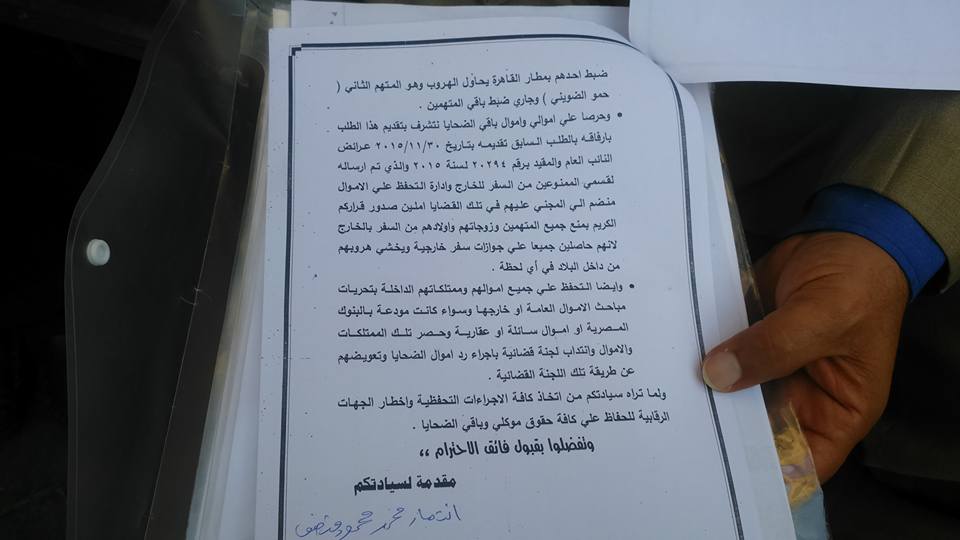 ضبط احدهم بمطار القاهرة يحاول الهروب وهو المتهم الثاني (
حمو الضويني ) وجاري ضبط باقي المتهمين .
• وحرصا علي اموالي واموال باقي الضحايا نتشرف بتقديم هذا الطلب
بارفاقه بالطلب السابق تقديمه بتاريخ ٢٠١٥/١١/٣٠ عرائض
النائب العام والمقيد برقم ٢٠٢٩٤ لسنة ٢٠١٥ والذي تم ارساله
لقسمي الممنوعين من السفر للخارج وادارة التحفظ علي الاموال
منضم الي المجني عليهم في تلك القضايا املين صدور قراركم
الكريم بمنع جميع المتهمين وزوجاتهم واولادهم من السفر بالخارج
لانهم حاصلين جميعا علي جوازات سفر خارجية ويخشي هروبهم
من داخل البلاد في أي لحظة .
• وايضا التحفظ علي جميع اموالهم وممتلكاتهم الداخلة بتحريات
مباحث الاموال العامة او خارجها وسواء كانت مودعة بالبنوك
المصرية او اموال سائلة او عقارية وحصر تلك الممتلكات
والاموال وانتداب لجنة قضائية باجراء رد اموال الضحايا وتعويضهم
عن طريقة تلك اللجنة القضائية .
ولما تراه سيادتكم من اتخاذ كافة الاجراءات التحفظية واخطار الجهات
الرقابية للحفاظ علي كافة حقوق موكلي وباقي الضحايا .
وتفضلوا بقبول فائق الاحترام ،،
مقدمة لسيادتكم
انتصار محمد محمود